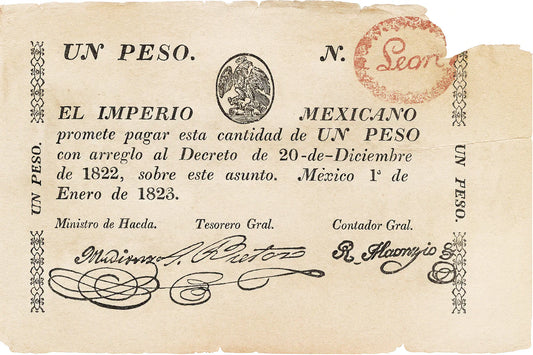 UN PESO.
N.
Leon
EL IMPERIO MEXICANO
promete pagar esta cantidad de UN PESO
con arreglo al Decreto de 20-de-Diciembre
de 1822, sobre este asunto. México 1ª de
Enero de 1823.
Ministro de Hacda. Tesorero Gral. Contador Gral.
UN PESO.
UN PESO.